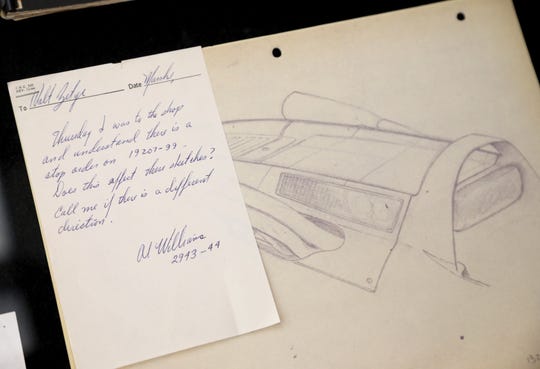 To Walt Zelge Date Monday
Thursday I was to the shop
and understand there is a
stop order on 19207-99.
Does this affect these sketches?
Call me if there is a different
direction.
Al Williams
2943-44